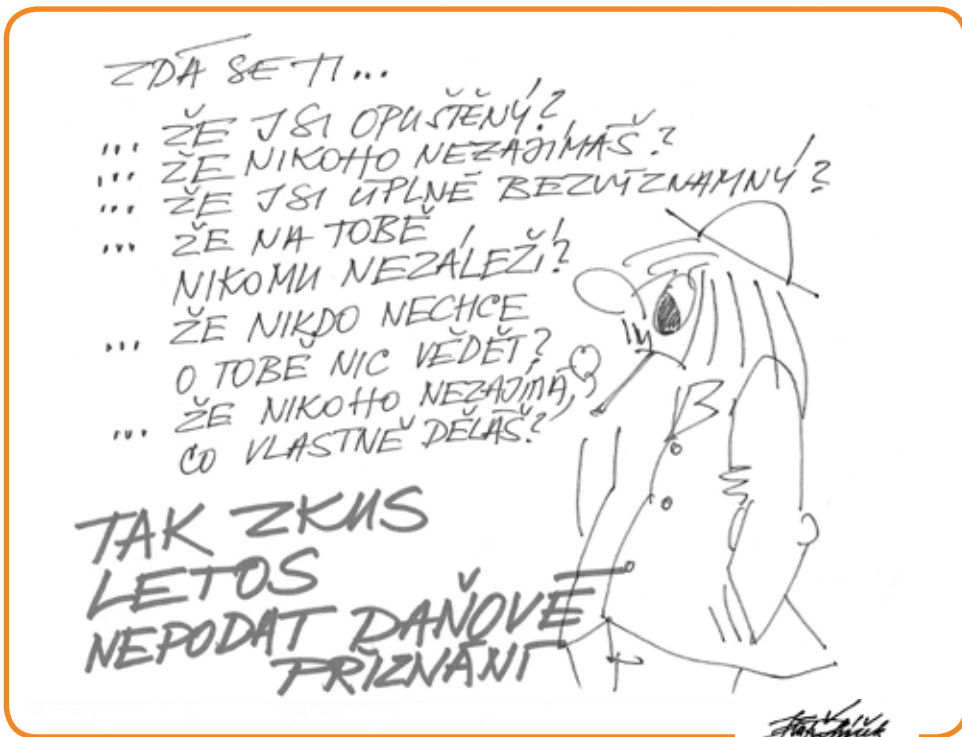 ZDÁ SE TI...
... ŽE JSI OPUŠTĚNÝ?
... ŽE NIKOHO NEZAJÍMÁŠ?
... ŽE JSI ÚPLNĚ BEZVÝZNAMNÝ?
... ŽE NA TOBĚ
NIKOMU NEZÁLEŽÍ?
... ŽE NIKDO NECHCE
O TOBĚ NIC VĚDĚT?
... ŽE NIKOHO NEZAJÍMÁ,
CO VLASTNĚ DĚLÁŠ?
TAK ZKUS
LETOS
NEPODAT DAŇOVÉ
PŘIZNÁNÍ